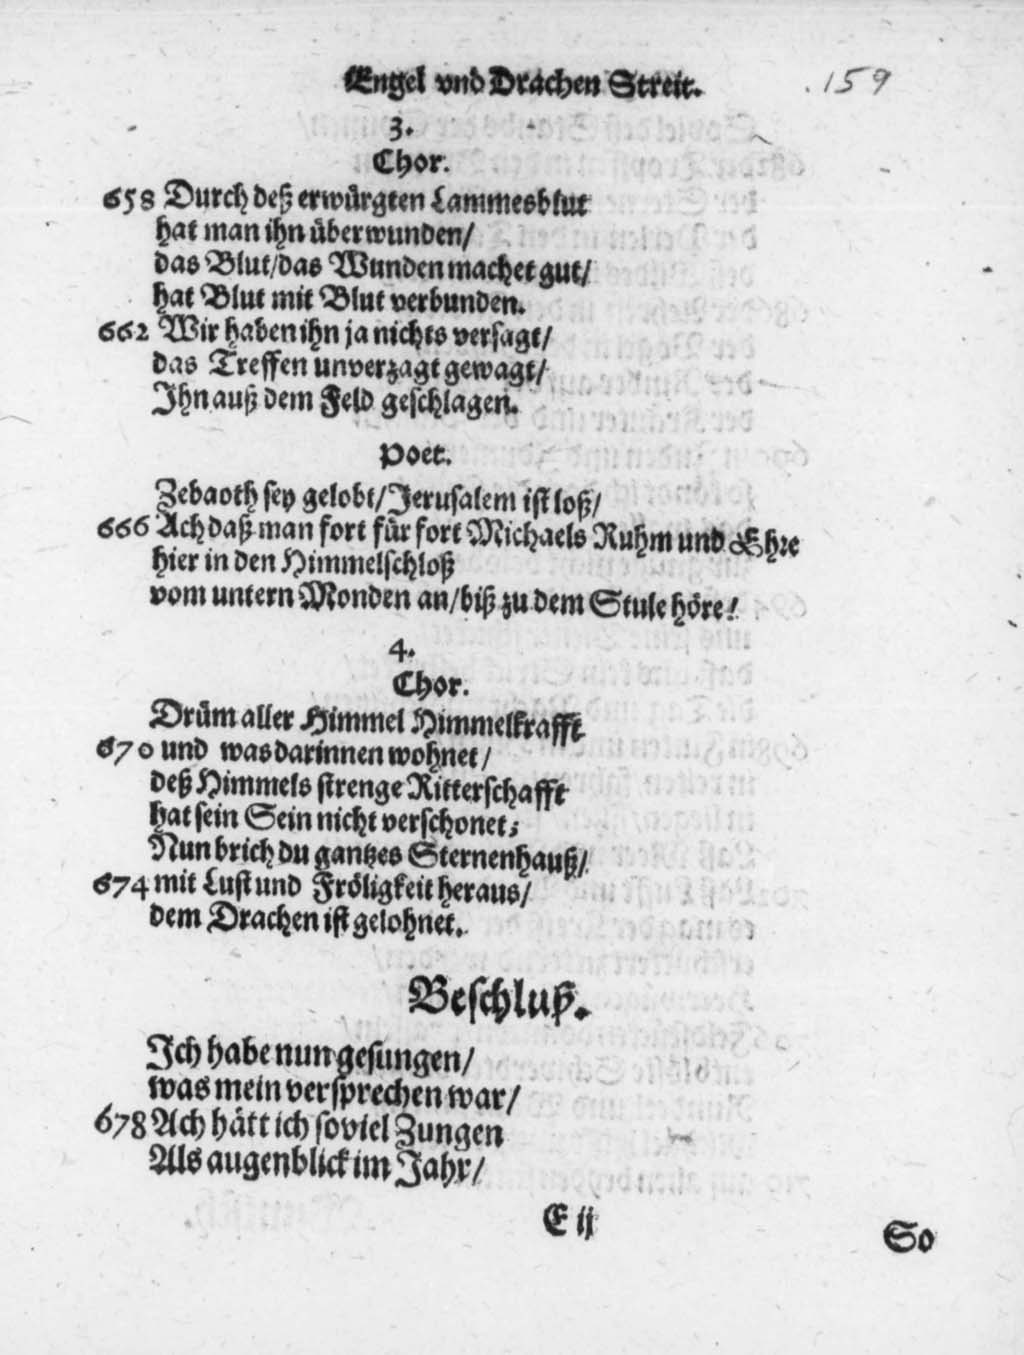 Engel vnd Drachen Streit. 159
3.
Chor.
658 Durch deß erwürgten Lammesblut
hat man ihn überwunden/
das Blut/das Wunden machet gut/
hat Blut mit Blut verbunden.
662 Wir haben ihn ja nichts versagt/
das Treffen unverzagt gewagt/
Ihn auß dem Feld geschlagen.
Poet.
Zebaoth sey gelobt/Jerusalem ist loß/
666 Ach daß man fort für fort Michaels Ruhm und Ehre
hier in den Himmelschloß
vom untern Monden an/biß zu dem Stule höre!
4.
Chor.
Drüm aller Himmel Himmelkrafft
670 und was darinnen wohnet/
deß Himmels strenge Ritterschafft
hat sein Sein nicht verschonet;
Nun brich du gantzes Sternenhauß/
674 mit Lust und Fröligkeit heraus/
dem Drachen ist gelohnet.
Beschluß.
Ich habe nun gesungen/
was mein versprechen war/
678 Ach hätt ich soviel Zungen
Als augenblick im Jahr/
E ij
So